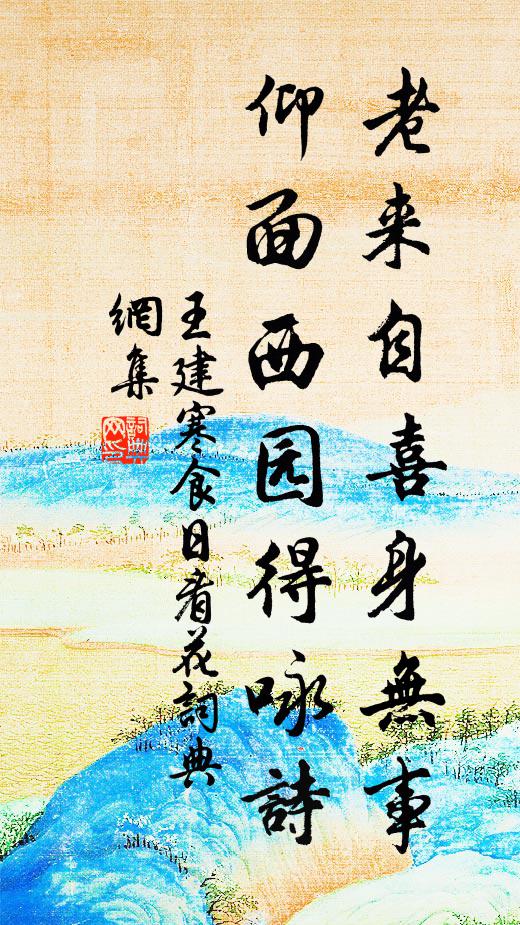 老来自喜身無事
仰面西园得咏詩
王建寒食日看花詞典
網集